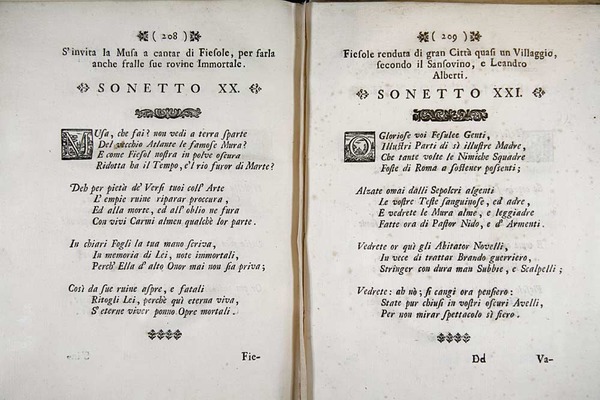 ( 208 )
S'invita la Musa a cantar di Fiesole, per farla
anche fralle sue rovine Immortale.
SONETTO XX.
MUsa, che fai? non vedi a terra sparte
Del vecchio Atlante le famose Mura?
E come Fiesol nostra in polve oscura
Ridotta ha il Tempo, e'l rio furor di Marte?
Deh per pietà de' Versi tuoi coll' Arte
L' empie ruine riparar proccura,
Ed alla morte, ed all' oblio ne fura
Con vivi Carmi almen qualchè lor parte.
In chiari Fogli la tua mano scriva,
In memoria di Lei, note immortali,
Perch' Ella d' alto Onor mai non sia priva;
Così da sue ruine aspre, e fatali
Ritogli Lei, perchè quì eterna viva,
S' eterne viver ponno Opre mortali.
Fie-
( 209 )
Fiesole renduta di gran Città quasi un Villaggio,
secondo il Sansovino, e Leandro
Alberti.
SONETTO XXI.
O Gloriose voi Fesulee Genti,
Illustri Parti di sì illustre Madre,
Che tante volte le Nimiche Squadre
Foste di Roma a sostener possenti;
Alzate omai dalli Sepolcri algenti
Le vostre Teste sanguinose, ed adre,
E vedrete le Mura alme, e leggiadre
Fatte ora di Pastor Nido, e d' Armenti.
Vedrete or quì gli Abitator Novelli,
In vece di trattar Brando guerriero,
Stringer con dura man Subbie, e Scalpelli;
Vedrete: ah nò; si cangi ora pensiero:
State pur chiusi in vostri oscuri Avelli,
Per non mirar spettacolo sì fiero.
Dd
Va-